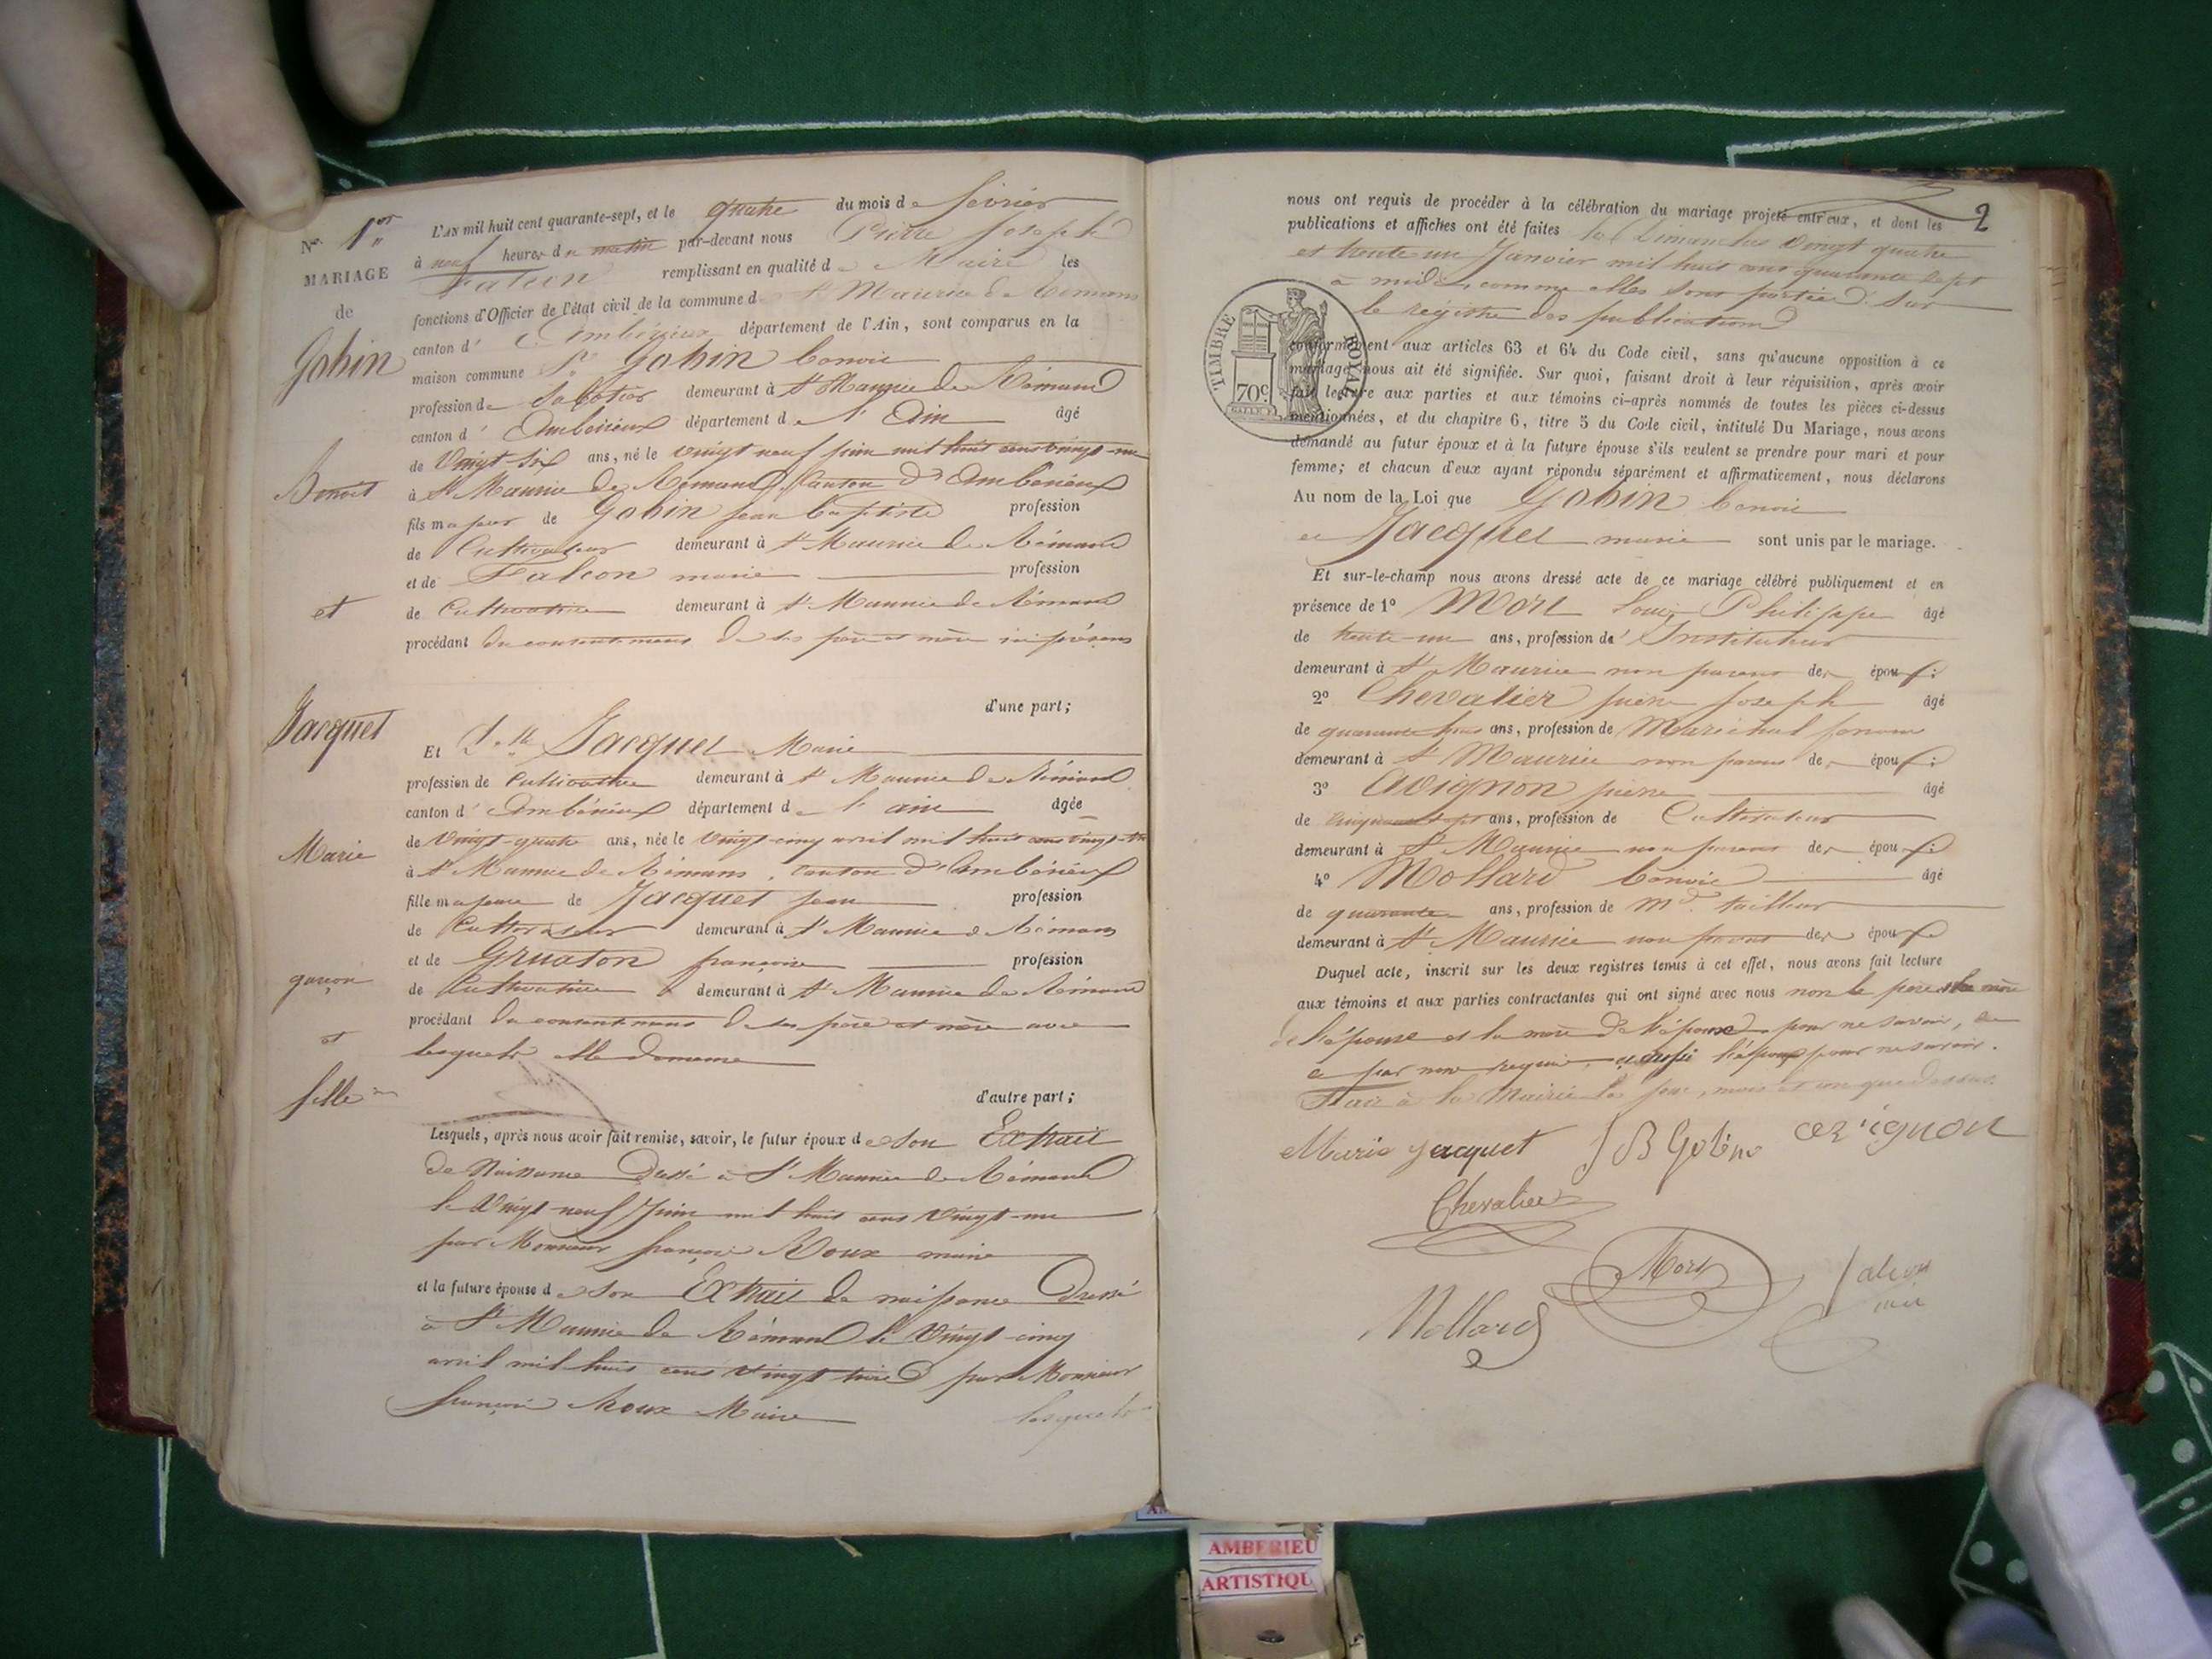 No. 1er
MARIAGE
de
Gobin
Benoit
et
Jacquet
Marie
garçon
et
fille
L'an mil huit cent quarante-sept, et le quatre du mois de février
à neuf heures du matin par-devant nous Pierre Joseph
Falcon remplissant en qualité de Maire les
fonctions d'Officier de l'état civil de la commune de St Maurice de Rémens
canton d' Ambérieux département de l'Ain, sont comparus en la
maison commune Sr Gobin benoit
profession de Sabotier demeurant à St Maurice de Rémens
canton d' Ambérieux département de l' Ain âgé
de vingt six ans, né le vingt neuf juin mil huit cent vingt-un
à St Maurice de Rémens, Canton d'Ambérieux
fils majeur de Gobin jean baptiste profession
de Cultivateur demeurant à St Maurice de Rémens
et de Falcon marie profession
de Cultivatrice demeurant à St Maurice de Rémens
procédant du consentement de ses père et mère ici présens
d'une part;
Et Delle Jacquet Marie
profession de Cultivatrice demeurant à St Maurice de Rémens
canton d' Ambérieux département de l' ain âgée
de vingt-quatre ans, née le vingt-cinq avril mil huit cent vingt-trois
à St Maurice de Rémens, canton d'Ambérieux
fille majeure de Jacquet jean profession
de Cultivateur demeurant à St Maurice de Rémens
et de Gruaton françoise profession
de Cultivatrice demeurant à St Maurice de Rémens
procédant du consentement de ses père et mère avec
lesquels elle demeure
d'autre part;
Lesquels, après nous avoir fait remise, savoir, le futur époux de son Extrait
de Naissance Dressé à St Maurice de Rémens
le vingt-neuf Juin mil huit cent vingt-un
par Monsieur françois Roux maire
et la future épouse de son Extrait de naissance Dressé
à St Maurice de Rémens le vingt-cinq
avril mil huit cent vingt trois par Monsieur
françois Roux Maire lesquels
2
nous ont requis de procéder à la célébration du mariage projeté entr'eux, et dont les
publications et affiches ont été faites les Dimanches vingt quatre
et trente un Janvier mil huit cent quarante sept
à midi, comme elles sont portées sur
le régistre des publications
TIMBRE ROYAL
70c.
conformément aux articles 63 et 64 du Code civil, sans qu'aucune opposition à ce
mariage nous ait été signifiée. Sur quoi, faisant droit à leur réquisition, après avoir
fait lecture aux parties et aux témoins ci-après nommés de toutes les pièces ci-dessus
mentionnées, et du chapitre 6, titre 5 du Code civil, intitulé Du Mariage, nous avons
demandé au futur époux et à la future épouse s'ils veulent se prendre pour mari et pour
femme; et chacun d'eux ayant répondu séparément et affirmativement, nous déclarons
Au nom de la Loi que Gobin benoit
et Jacquet marie sont unis par le mariage.
Et sur-le-champ nous avons dressé acte de ce mariage célébré publiquement et en
présence de 1° Mort Louis Philippe âgé
de trente-un ans, profession de Instituteur
demeurant à St Maurice non parent des époux:
2° Chevalier pierre joseph âgé
de quarante trois ans, profession de Maréchal ferrant
demeurant à St Maurice non parent des époux:
3° Avignon pierre âgé
de cinquante sept ans, profession de Cultivateur
demeurant à St Maurice non parent des époux:
4° Mollard benoit âgé
de quarante ans, profession de Md. tailleur
demeurant à St Maurice non parent des époux
Duquel acte, inscrit sur les deux registres tenus à cet effet, nous avons fait lecture
aux témoins et aux parties contractantes qui ont signé avec nous non le père et la mère
de l'épouse et la mère de l'époux pour ne savoir, de
ce par nous requis, et aussi l'époux pour ne savoir.
Fait à la Mairie le jour, mois et an que dessus.
Marie jacquet J B Gobin avignon
Chevalier
Mort
Mollard
falcon
AMBERIEU
ARTISTIQU